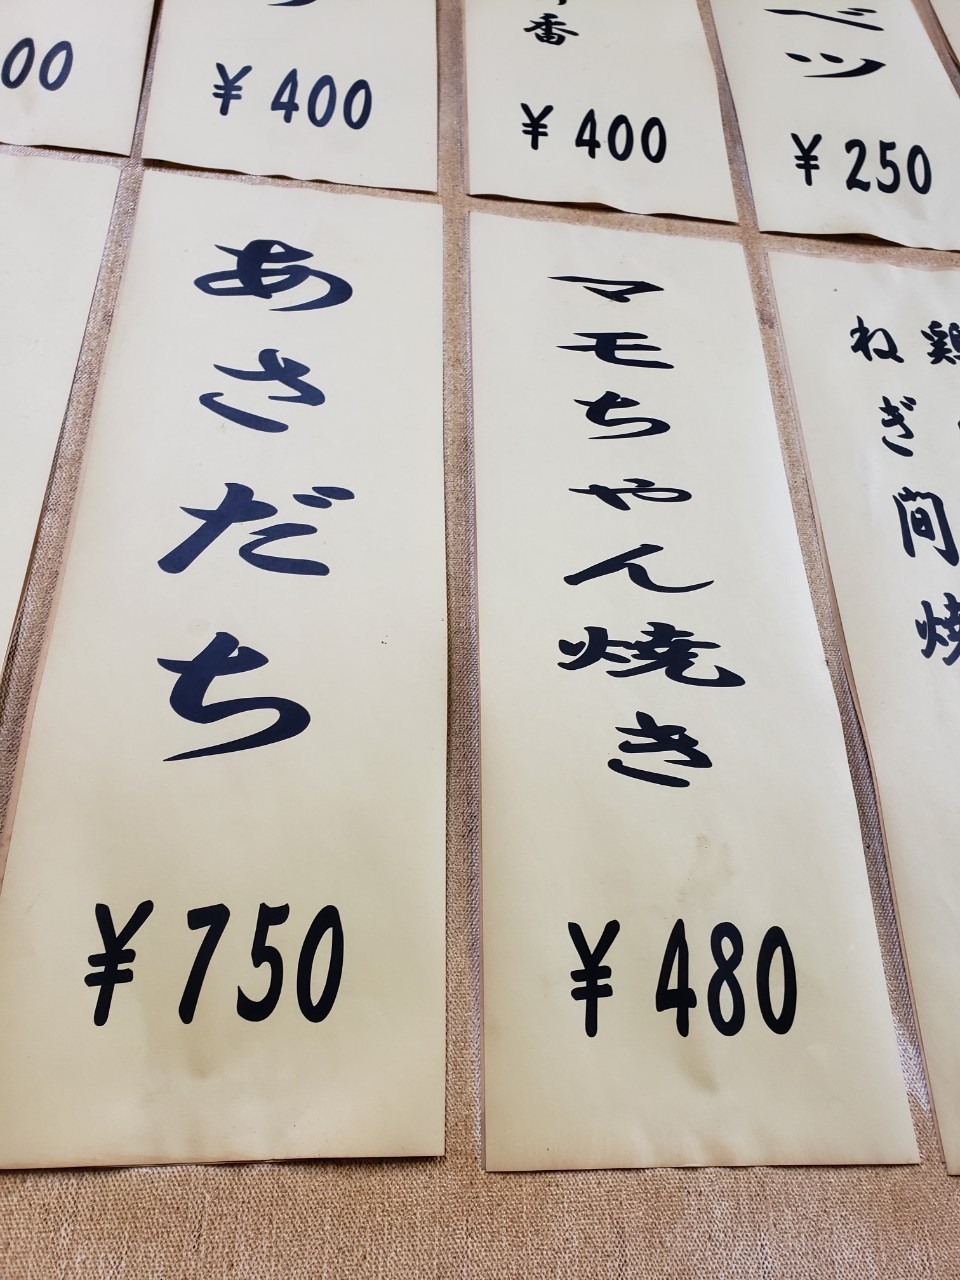 00
¥400
番
¥400
ベツ
¥250
あさだち
¥750
マモちゃん焼き
¥480
鶏
ねぎ間焼